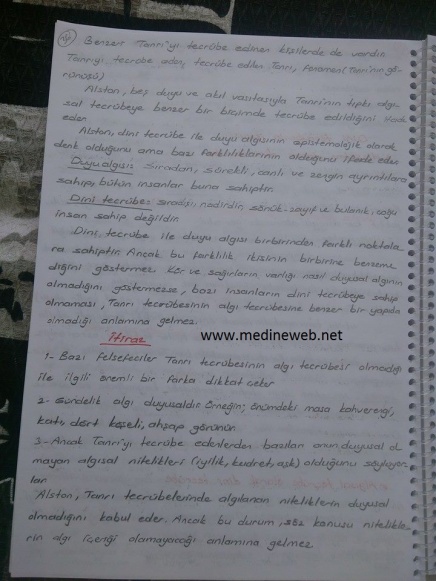 Benzeri Tanrı'yı tecrübe edinen kişilerde de vardır
Tanrıyı tecrübe eden, tecrübe edilen Tanrı, fenomen (Tanrı'nın gö-
rünüşü)
Alston, beş duyu ve akıl vasıtasıyla Tanrı'nın tıpkı algı-
sal tecrübeye benzer bir biçimde tecrübe edildiğini
eder.
Alston, dini tecrübe ile duyu algısının epistemolojik olarak
denk olduğunu ama bazı farklılıklarının olduğunu ifade eder
Duyu algısı: Sıradan, sürekli, canlı ve zengin ayrıntılara
sahip, bütün insanlar buna sahiptir.
Dini tecrübe: sıradışı, nadirdir, sönük-zayıf ve bulanık, çoğu
insan sahip değildir.
Dini tecrübe ile duyu algısı birbirinden farklı noktala-
ra sahiptir. Ancak bu farklılık ikisinin birbirine benzeme
diğini göstermez. Kör ve sağırların varlığı nasıl duyusal algının
olmadığını göstermezse, bazı insanların dini tecrübeye sahip
olmaması, Tanrı tecrübesinin algı tecrübesine benzer bir yapıda
olmadığı anlamına gelmez.
İtiraz
www.medineweb.net
1- Bazı felsefeciler Tanrı tecrübesinin algı tecrübesi olmadığı
ile ilgili önemli bir farka dikkat çeker
2- Gündelik algı duyusaldır. Örneğin; önümdeki masa kahverengi,
katı, dört köşeli, ahşap görünür.
3- Ancak Tanrı'yı tecrübe edenlerden bazıları onun duyusal ol
mayan algısal nitelikleri (iyilik, kudret, aşk) olduğunu söylüyor-
lar
Alston, Tanrı tecrübelerinde algılanan niteliklerin duyusal
olmadığını kabul eder. Ancak bu durum, söz konusu nitelikle-
rin algı içeriği olamayacağı anlamına gelmez